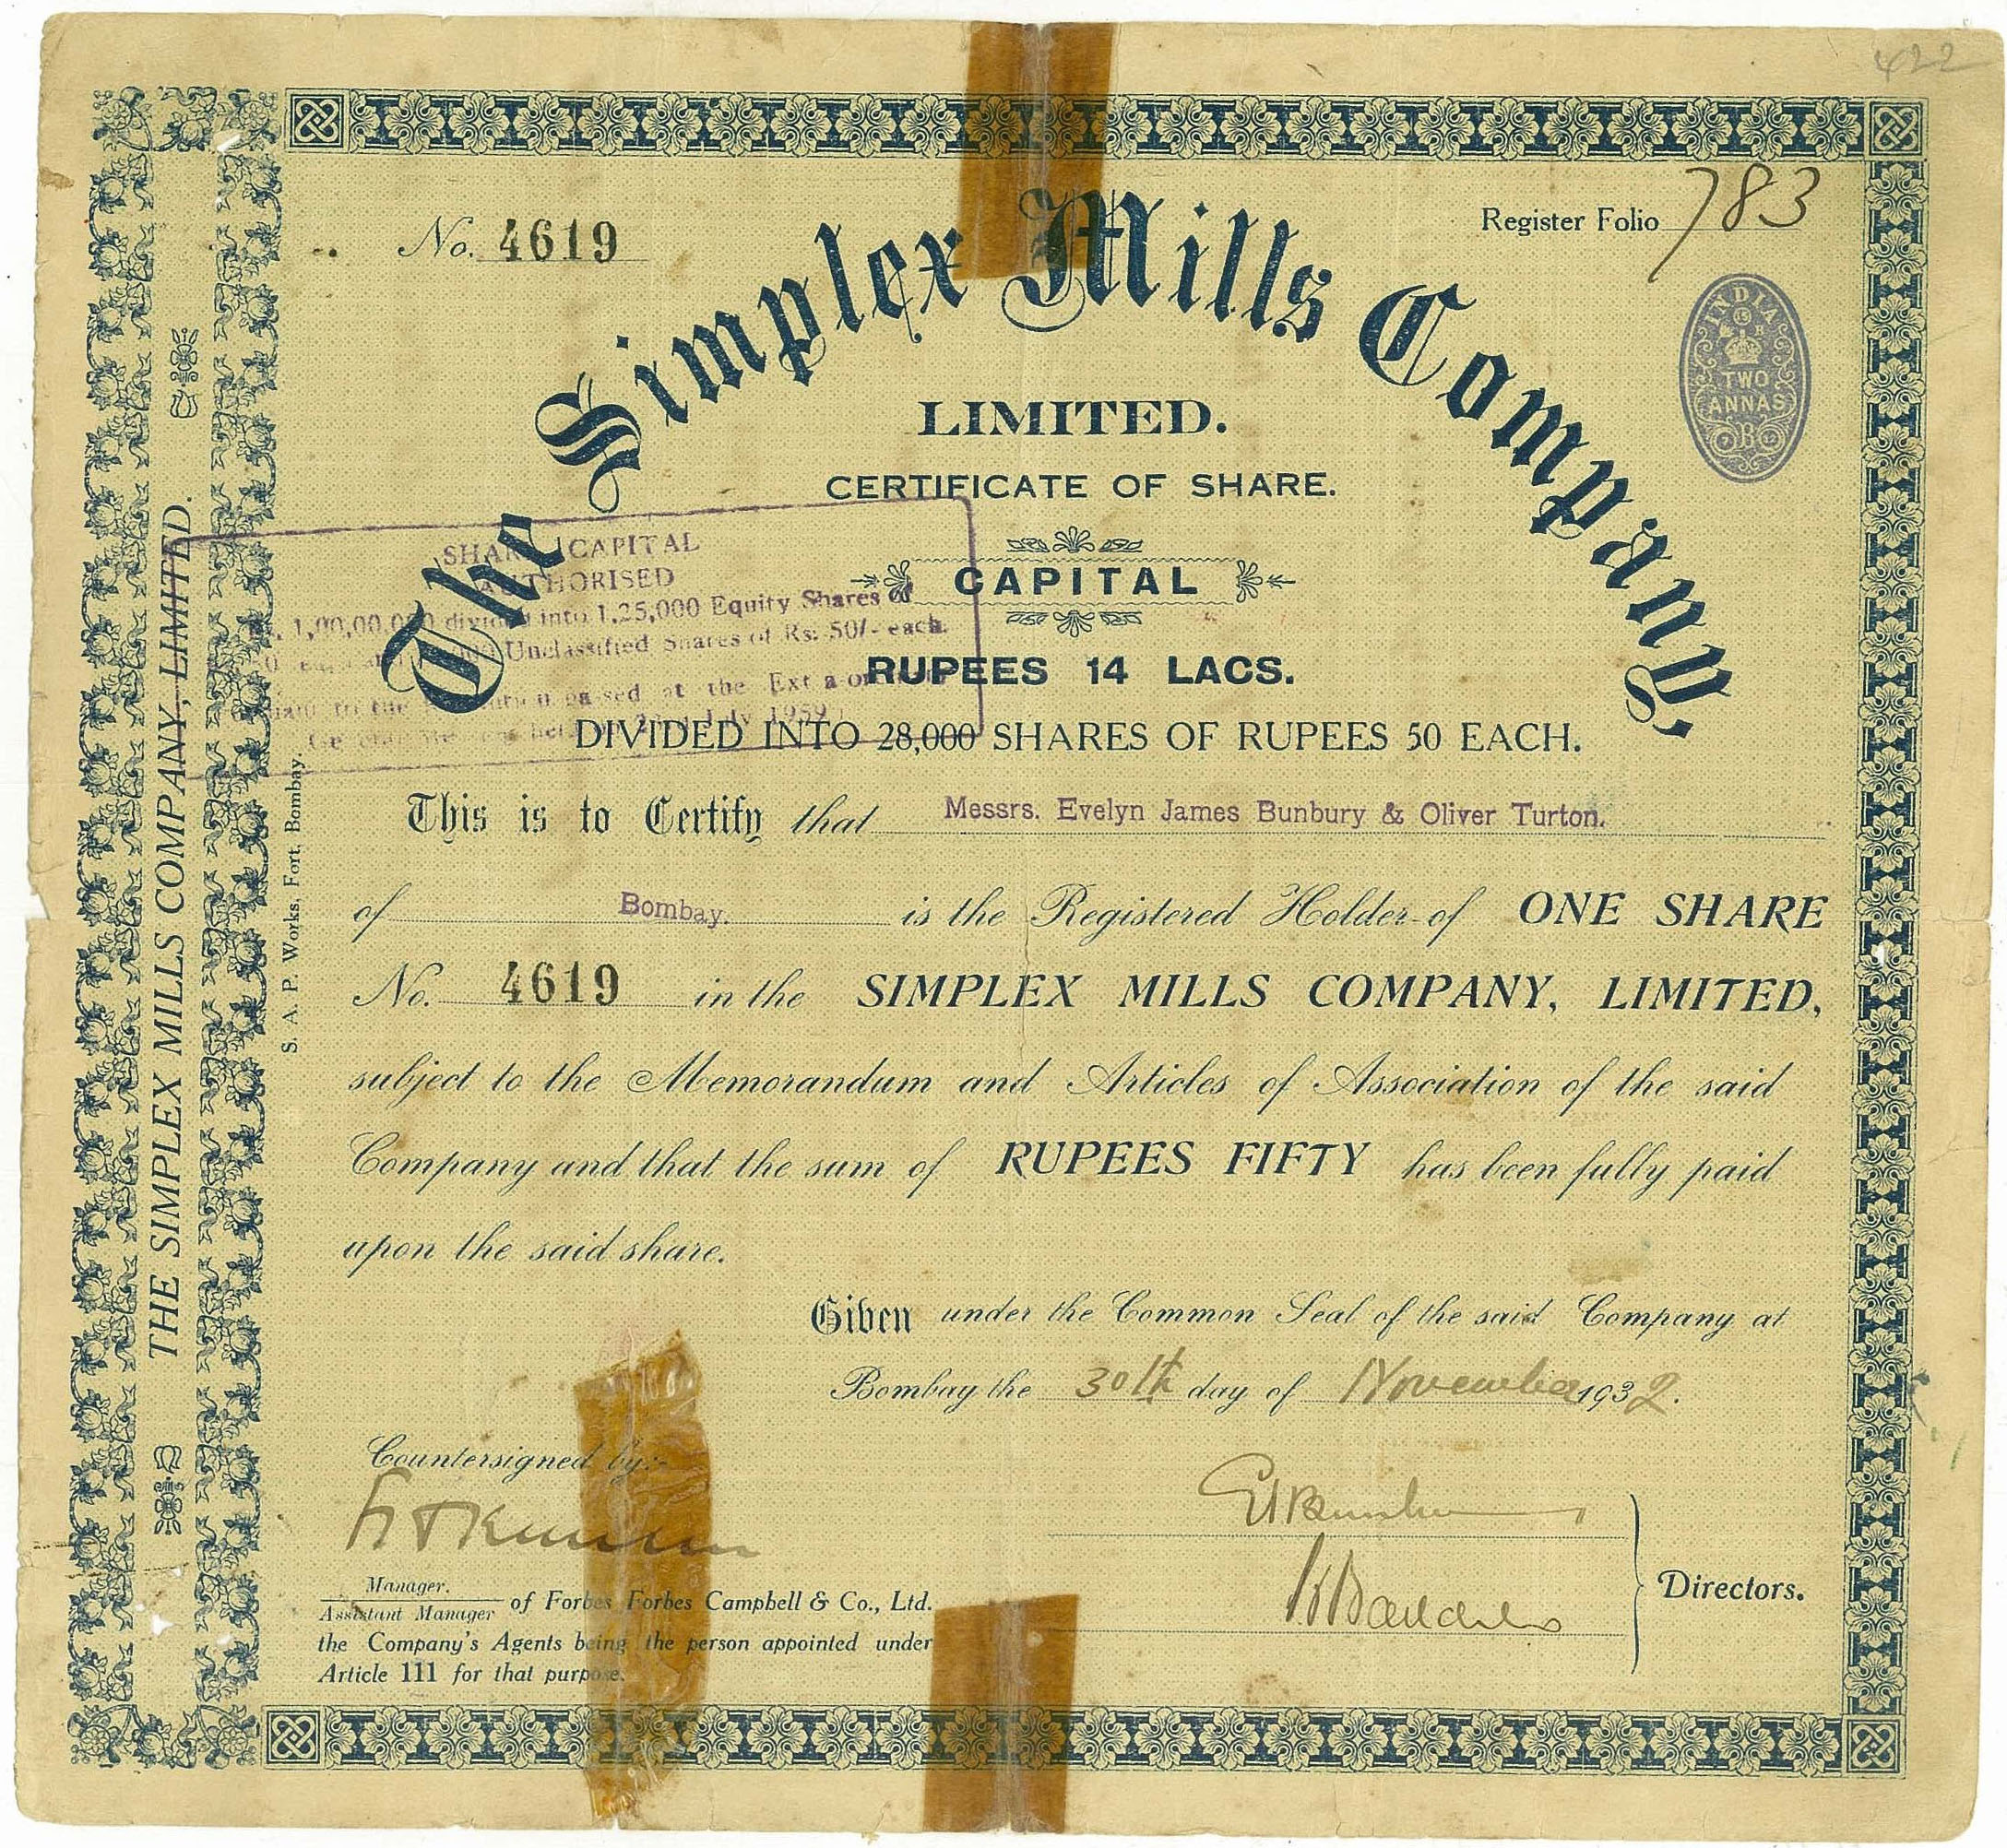 422
No. 4619
Register Folio 783
INDIA
TWO
ANNAS
The Simplex Mills Company,
LIMITED.
CERTIFICATE OF SHARE.
SHARE CAPITAL
AUTHORISED
1,00,00,000 divided into 1,25,000 Equity Shares of
Unclassified Shares of Rs. 50/- each.
passed at the
July 1959
CAPITAL
RUPEES 14 LACS.
DIVIDED INTO 28,000 SHARES OF RUPEES 50 EACH.
This is to Certify that Messrs. Evelyn James Bunbury & Oliver Turton.
of Bombay. is the Registered Holder of ONE SHARE
No. 4619 in the SIMPLEX MILLS COMPANY, LIMITED,
subject to the Memorandum and Articles of Association of the said
Company and that the sum of RUPEES FIFTY has been fully paid
upon the said share.
Given under the Common Seal of the said Company at
Bombay the 30th day of November 1932.
Countersigned by:-
Manager.
Assistant Manager of Forbes Forbes Campbell & Co., Ltd.
the Company's Agents being the person appointed under
Article 111 for that purpose.
Directors.
THE SIMPLEX MILLS COMPANY, LIMITED.
S. A. P. Works, Fort, Bombay.